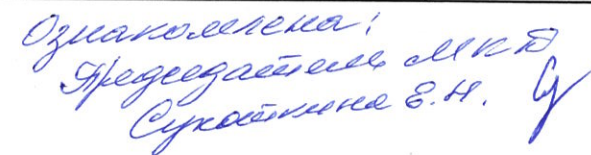 Ознакомлена:
Председатель МКД
Сукоткина Е.Н.